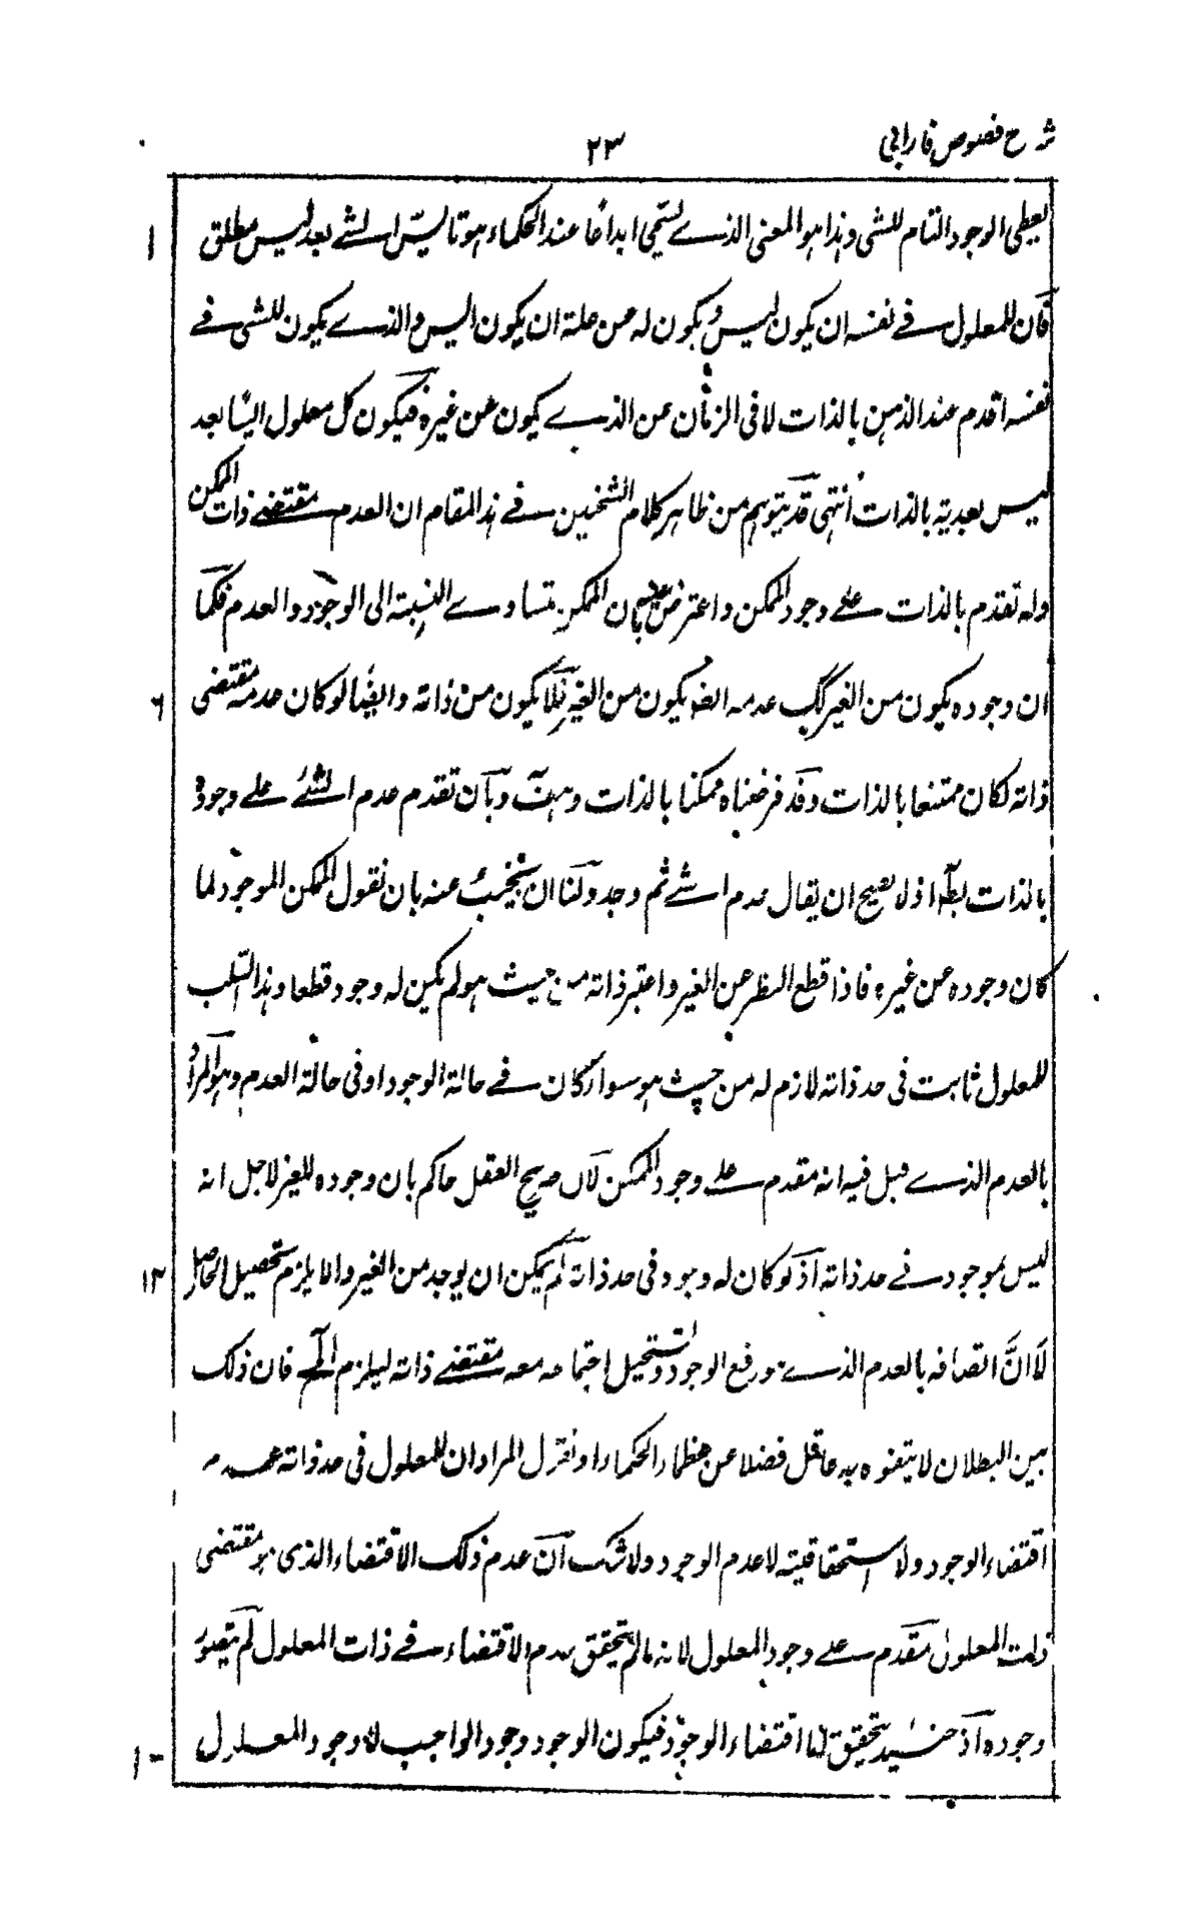 شرح فصوص فارابي
٢٣
يعطى الوجود التام للشى وهذا هو المعنى الذے يسمى ابداعًا عند الحكماء هو تاييس الشے بعد ليس مطلق
١
فان للمعلول فے نفسه ان يكون ليس ويكون له عن علته ان يكون اليس والذے يكون للشى فے
نفسه اقدم عند الذهن بالذات لا فى الزمان عن الذے يكون عن غيره فيكون كل معلول ايسًا بعد
ليس بعدية بالذات انتهى قد يتوهم من ظاهر كلام الشيخين فے هذا المقام ان العدم مقتضے ذات الممكن
وله تقدم بالذات علے وجود الممكن واعترض عليه بان الممكن متساوے النسبة الى الوجود والعدم فكما
ان وجوده يكون من الغير كك عدمه ايضا يكون من الغير فلا يكون من ذاته وايضا لو كان عدمه مقتضى
٦
ذاته لكان ممتنعا بالذات وقد فرضناه ممكنا بالذات وهف وبان تقدم عدم الشئ علے وجوده
بالذات بط اذ لا يصح ان يقال عدم الشے ثم وجد ولنا ان نجيب عنه بان نقول الممكن الموجود لما
كان وجوده عن غيره فاذا قطع النظر عن الغير واعتبر ذاته من حيث هو لم يكن له وجود قطعا وهذا السلب
للمعلول ثابت فى حد ذاته لازم له من حيث هو سوار كان فے حالة الوجود او فى حالة العدم وهو المراد
بالعدم الذے قيل فيه انه مقدم علے وجود الممكن لان صريح العقل حاكم بان وجوده للغير لاجل انه
ليس بموجود فے حد ذاته اذ لو كان له وجود فى حد ذاته لم يمكن ان يوجد من الغير والا يلزم تحصيل الحاصل
١٢
لا ان اتصافه بالعدم الذے هو رفع الوجود ويستحيل اجتماعه معه مقتضے ذاته ليلزم الخ فان ذلك
بين البطلان لا يتفوه به عاقل فضلا عن عظمار الحكمار او نقول المراد ان للمعلول فى حد ذاته عدم
اقتضاء الوجود ولا استحقاقيته لا عدم الوجود ولا شك ان عدم ذلك الاقتضاء الذى هو مقتضى
ذات المعلول مقدم علے وجود المعلول لانه مالم يتحقق عدم الاقتضاء فے ذات المعلول لم يتصور
وجوده اذ حينئذ يتحقق لها اقتضاء الوجود فيكون الوجود وجود الواجب لا وجود المعلول